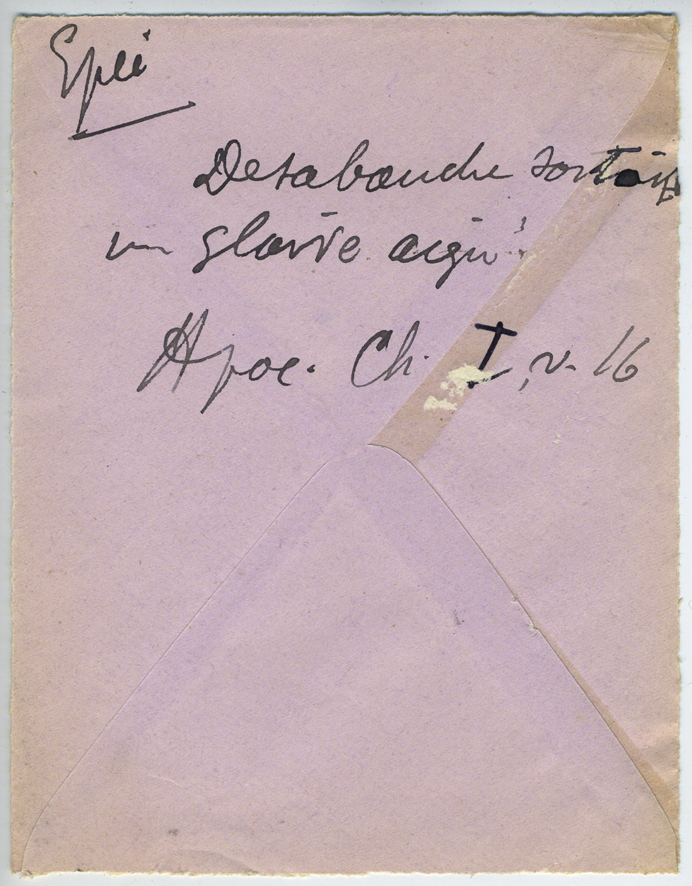 Epée
De sa bouche sortait
un glaive aigu
Apoc. Ch. I, v. 16